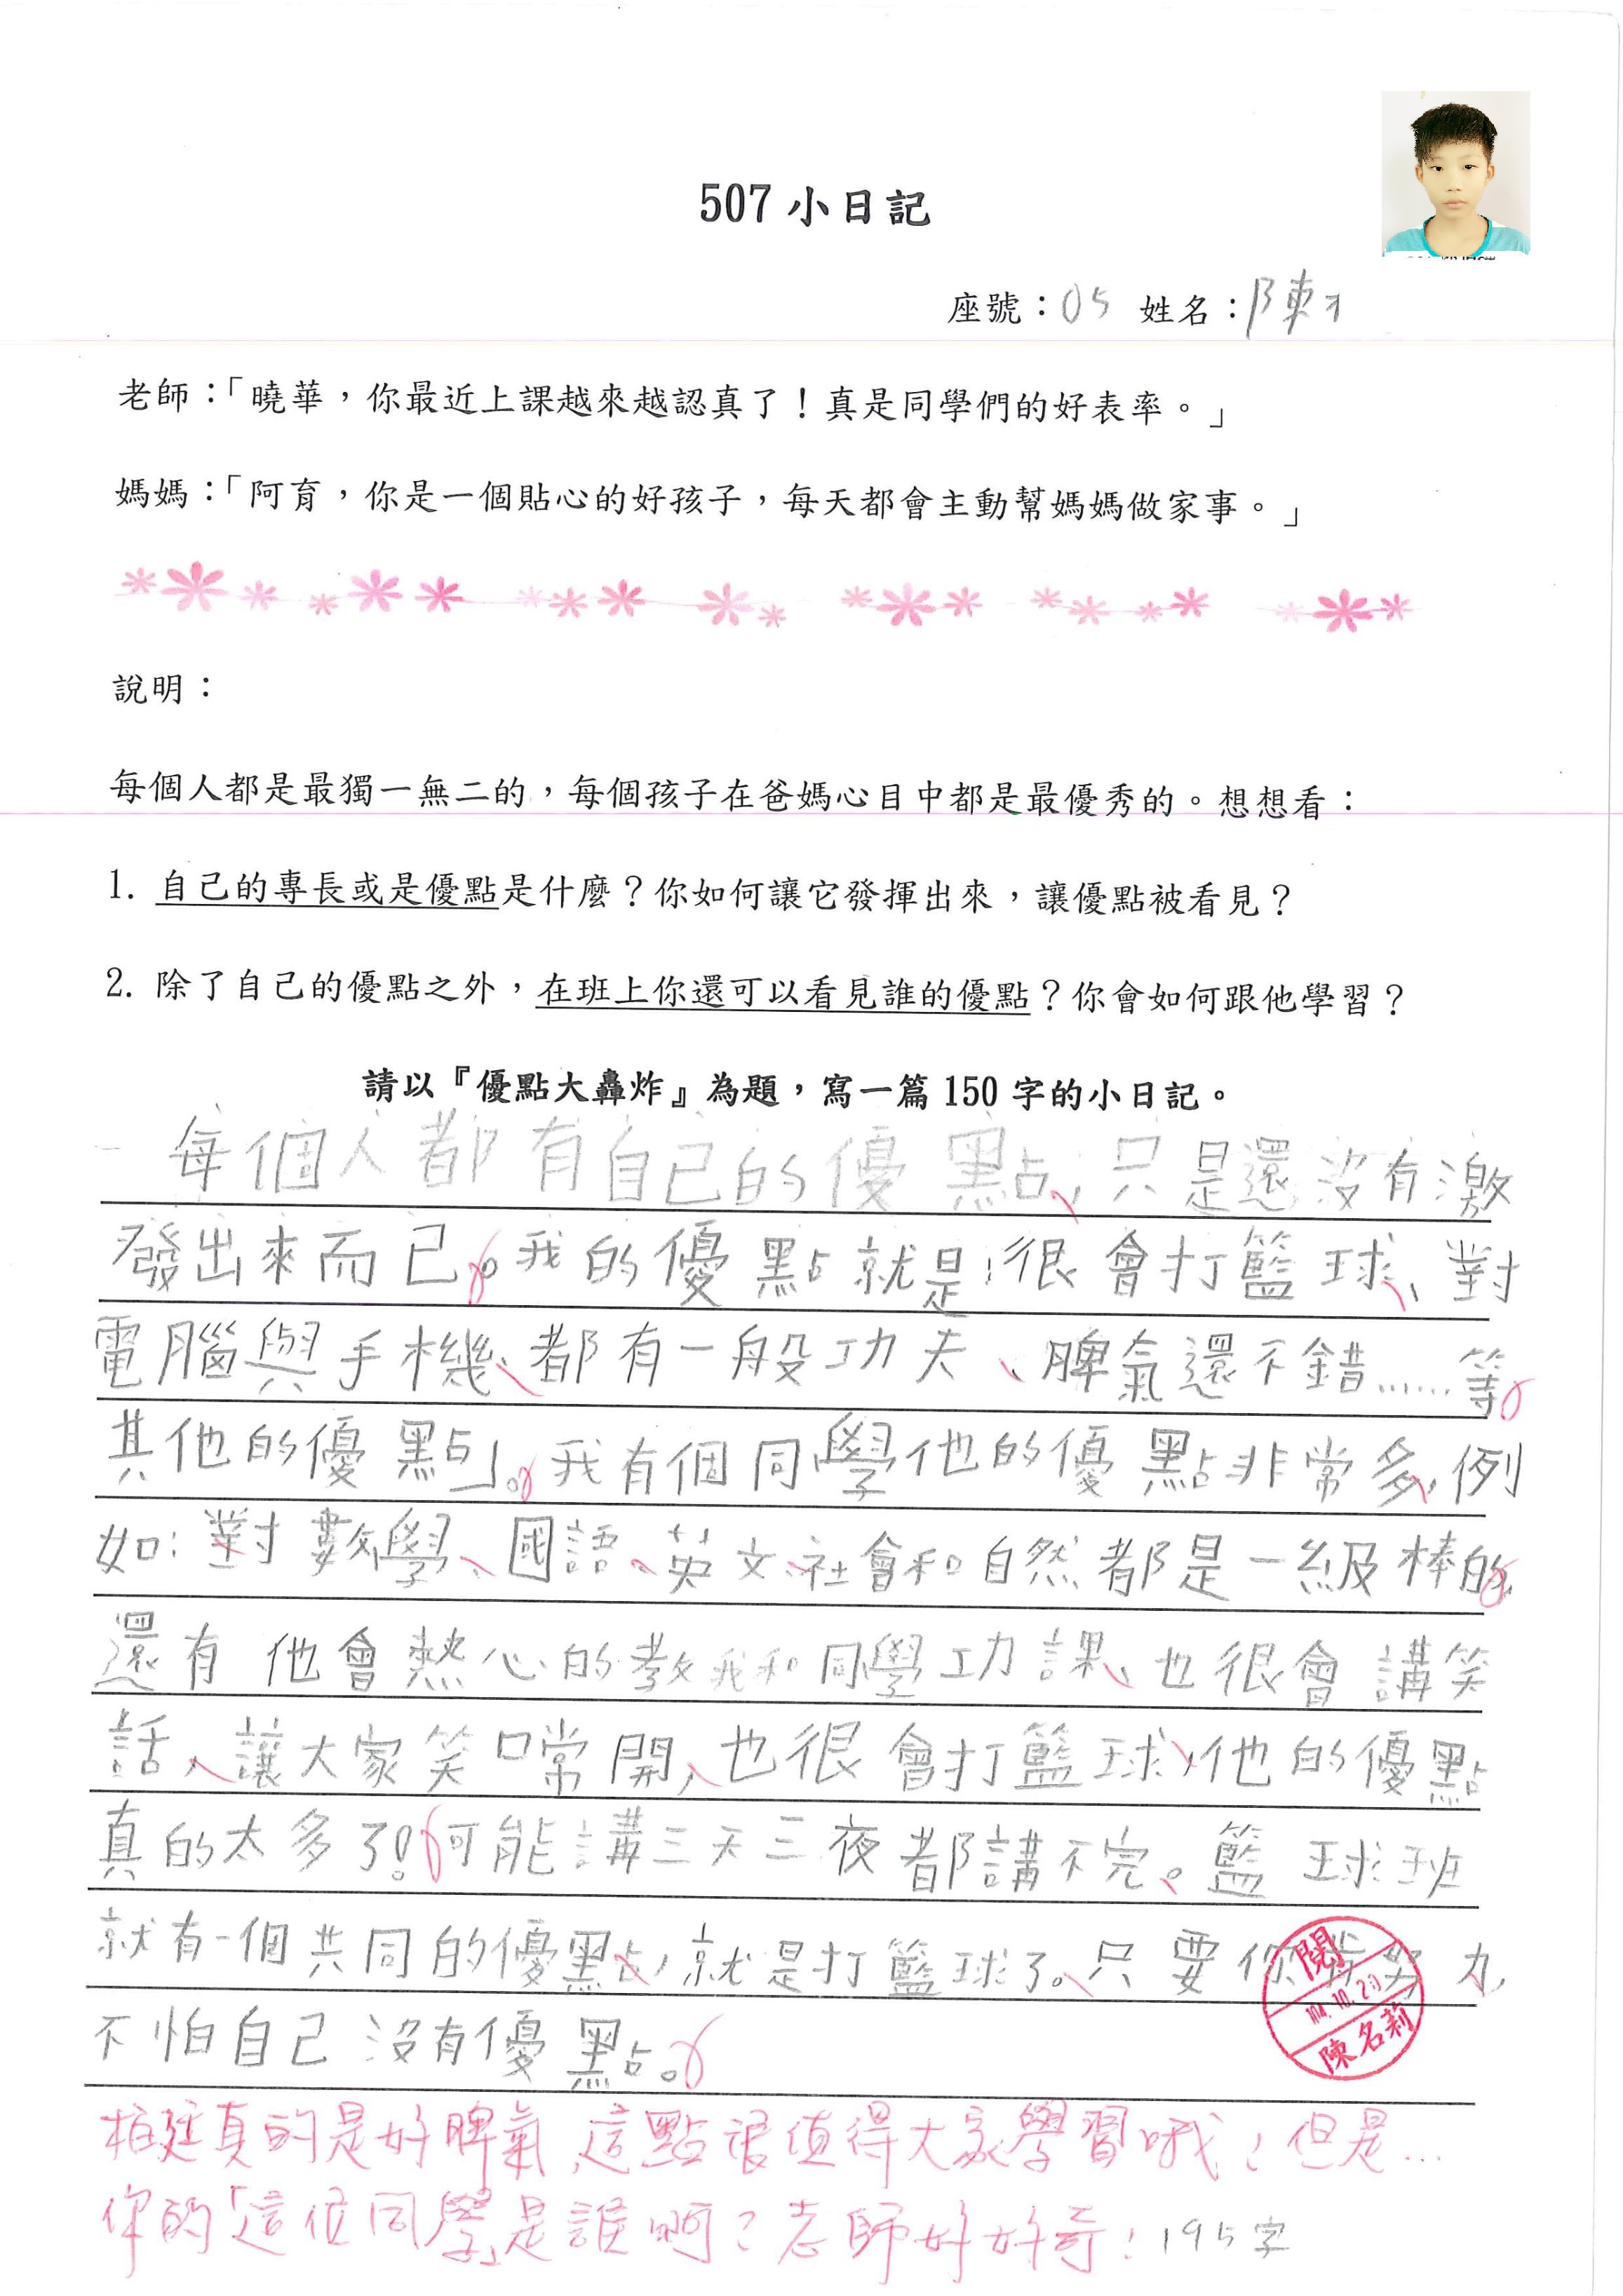 507 小日記
座號：05 姓名：陳
老師：「曉華，你最近上課越來越認真了！真是同學們的好表率。」
媽媽：「阿育，你是一個貼心的好孩子，每天都會主動幫媽媽做家事。」
說明：
每個人都是最獨一無二的，每個孩子在爸媽心目中都是最優秀的。想想看：
1. 自己的專長或是優點是什麼？你如何讓它發揮出來，讓優點被看見？
2. 除了自己的優點之外，在班上你還可以看見誰的優點？你會如何跟他學習？
請以『優點大轟炸』為題，寫一篇 150 字的小日記。
每個人都有自己的優點，只是還沒有激
發出來而已。我的優點就是：很會打籃球、對
電腦與手機、都有一般功夫、脾氣還不錯……等
其他的優點」。我有個同學他的優點非常多，例
如：對數學、國語、英文、社會和自然都是一級棒的，
還有他會熱心的教我和同學功課、也很會講笑
話，讓大家笑口常開，也很會打籃球，他的優點
真的太多了！可能講三天三夜都講不完。籃球班
就有一個共同的優點，就是打籃球了。只要你肯努力，
不怕自己沒有優點。
閱
104.10.20
陳名莉
柏廷真的是好脾氣，這點很值得大家學習哦！但是…
你的「這位同學」是誰啊？老師好好奇！195字